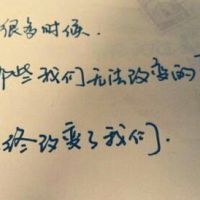 很多时候.
那些我们无法改变的
终改变了我们.